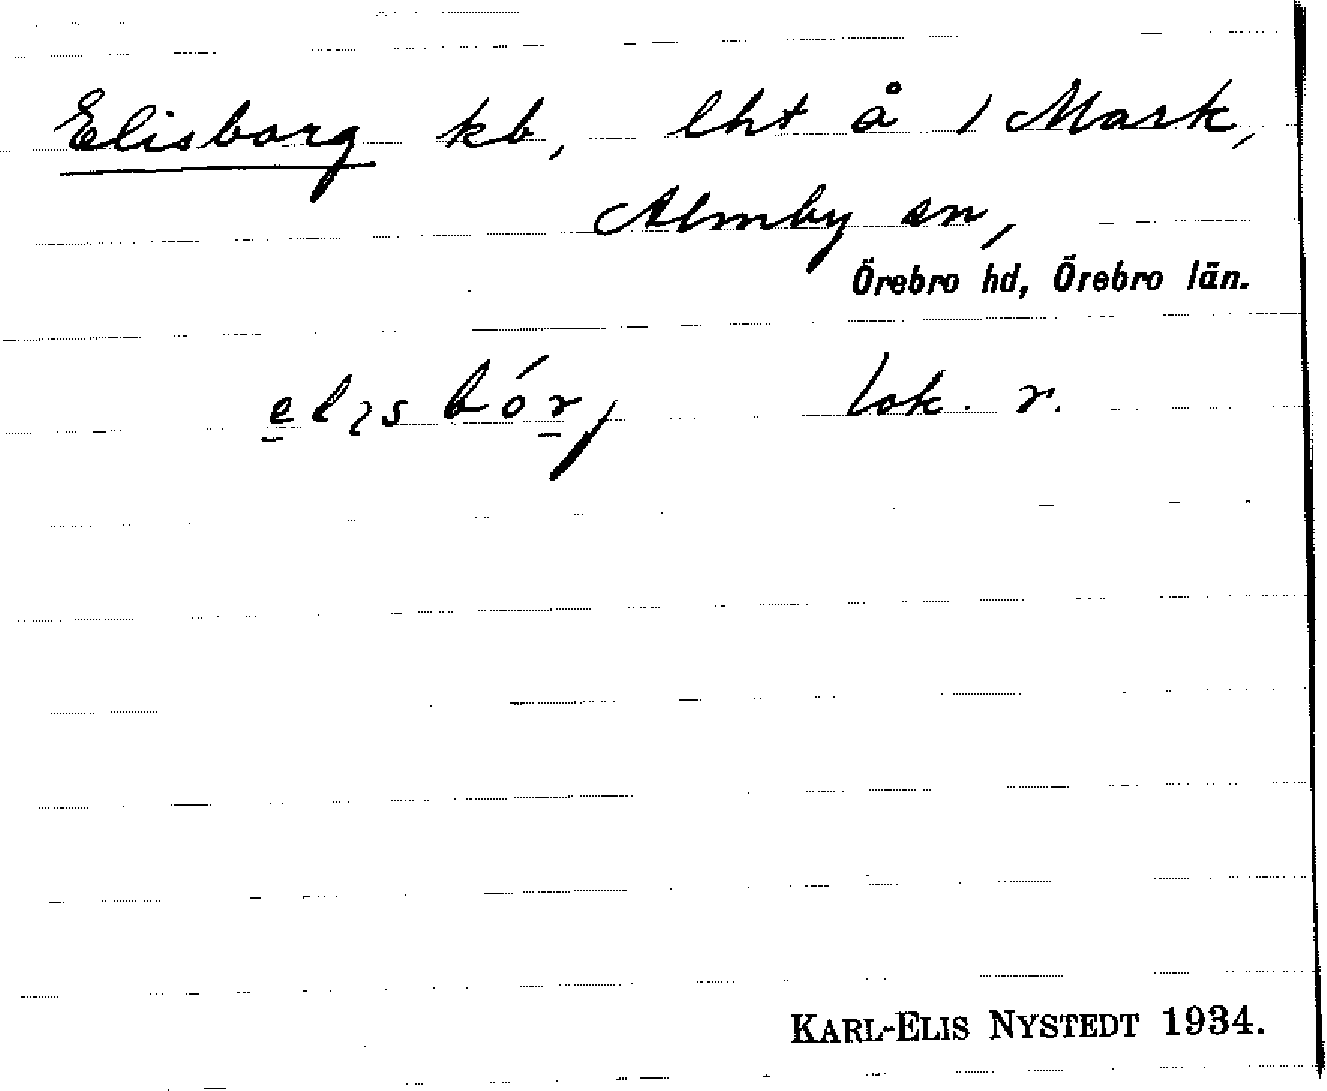 Elisborg kb, lht å 1 Mark,
Almby sn,
Örebro hd, Örebro län.
elısbórj lok. r.
KARL-ELIS NYSTEDT 1934.